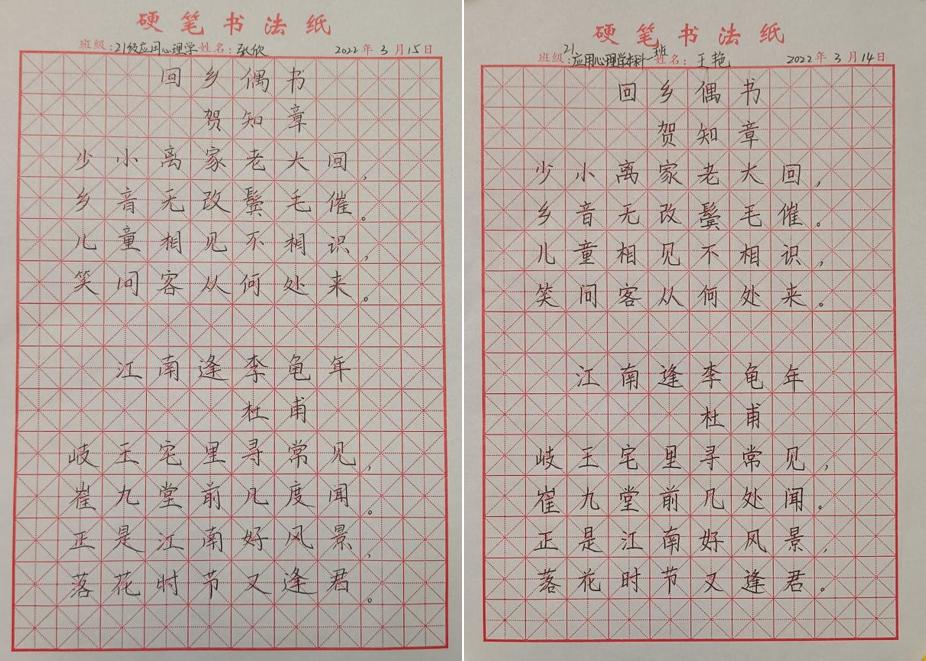 硬笔书法纸
班级:21级应用心理学 姓名:张欣 2022年3月15日
回乡偶书
贺知章
少小离家老大回,
乡音无改鬓毛催。
儿童相见不相识,
笑问客从何处来。
江南逢李龟年
杜甫
岐王宅里寻常见,
崔九堂前几度闻。
正是江南好风景,
落花时节又逢君。
硬笔书法纸
班级:21应用心理学本科一班 姓名:王艳 2022年3月14日
回乡偶书
贺知章
少小离家老大回,
乡音无改鬓毛催。
儿童相见不相识,
笑问客从何处来。
江南逢李龟年
杜甫
岐王宅里寻常见,
崔九堂前几处闻。
正是江南好风景,
落花时节又逢君。